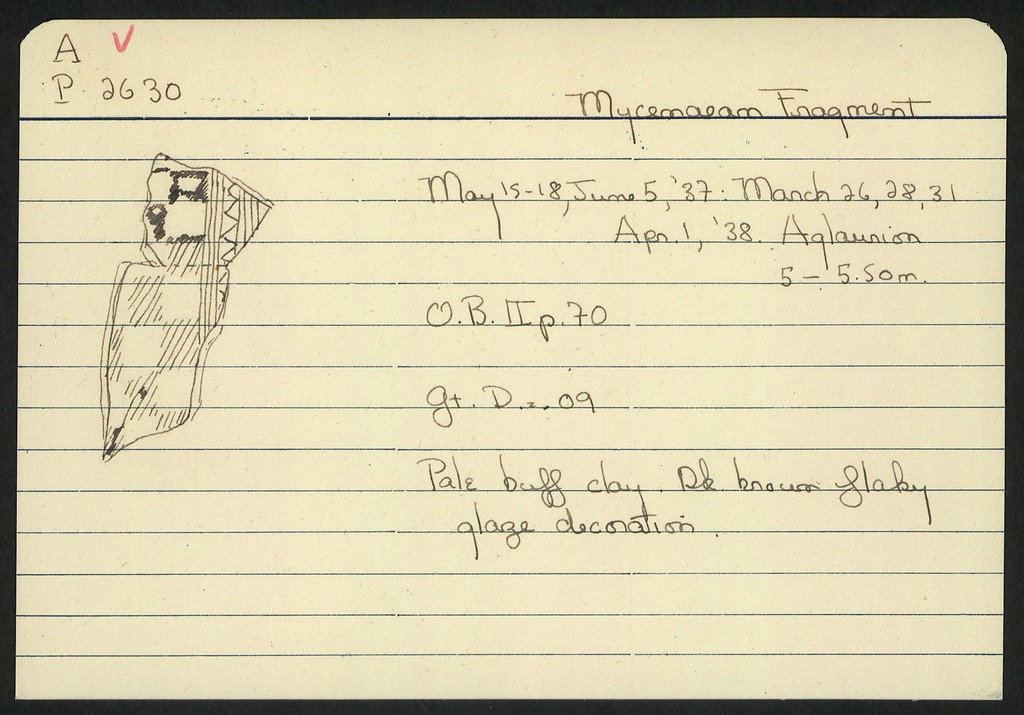 A V
P 2630
Mycenaean Fragment
May 15-18, June 5, '37: March 26, 28, 31
Apr. 1, '38. Aglaurion
5 – 5.50m.
O.B. II p. 70
Gt. D. = .09
Pale buff clay. Dk brown flaky
glaze decoration.